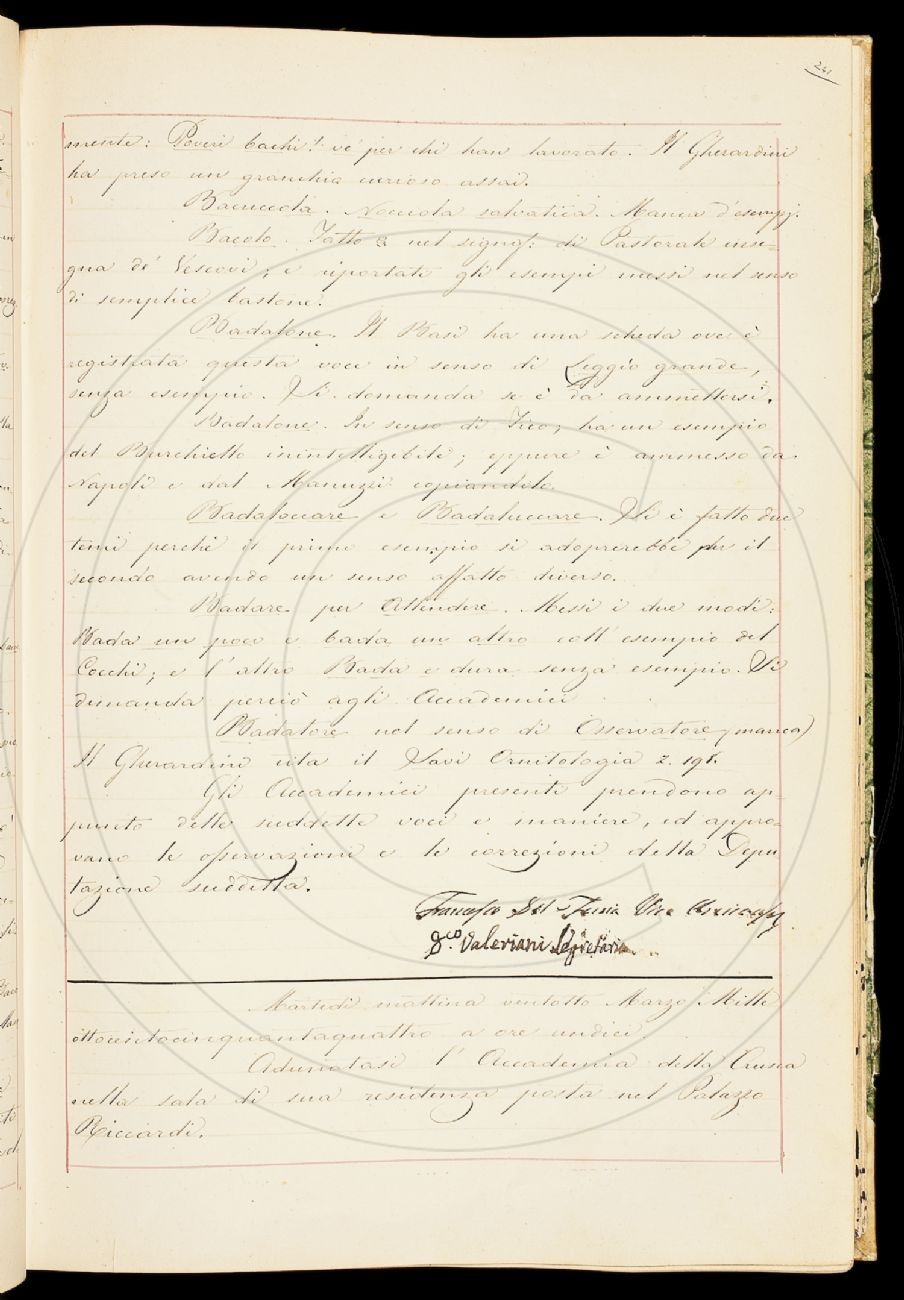 241
mente: Poveri bachi! v'è per chi han lavorato. Il Gherardini
ha preso un granchio curioso assai.
Bacuccola. Nocciola salvatica. Manca d'esempj.
Bacolo. Fatto § nel signif: di Pastorale inse-
gna de' Vescovi; e riportati gli esempi messi nel senso
di semplice bastone.
Badalone. Il Basi ha una scheda ove è
registrata questa voce in senso di Leggìo grande,
senza esempio. Si domanda se è da ammettersi.
Badalone. In senso di Fico; ha un esempio
del Burchiello inintelligibile; eppure è ammesso da
Napoli e dal Manuzzi copiandolo.
Badaloccare e Badaluccare. Si è fatto due
temi perchè il primo esempio si adoprerebbe per il
secondo avendo un senso affatto diverso.
Badare per Attendere. Messi i due modi:
Bada un poco e bada un altro coll' esempio del
Cocchi; e l'altro Bada e dura senza esempio. Si
dimanda perciò agli Accademici
Badatore nel senso di Osservatore (manca)
Il Gherardini cita il Savi Ornitologia 2. 198.
Gli Accademici presenti prendono ap-
punto delle suddette voci e maniere, ed appro-
vano le osservazioni e le correzioni della Depu
tazione suddetta.
Francesco Del-Furia Vice
Valeriani Segretario
Martedì mattina ventotto Marzo Mille
ottocentocinquantaquattro a ore undici.
Adunatasi l'Accademia della Crusca
nella sala di sua residenza posta nel Palazzo
Riccardi.